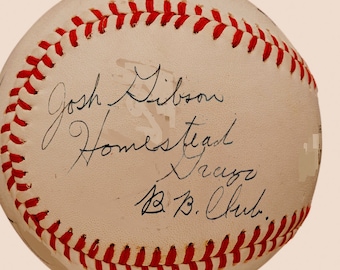 Josh Gibson
Homestead
Grays
B.B. Club.